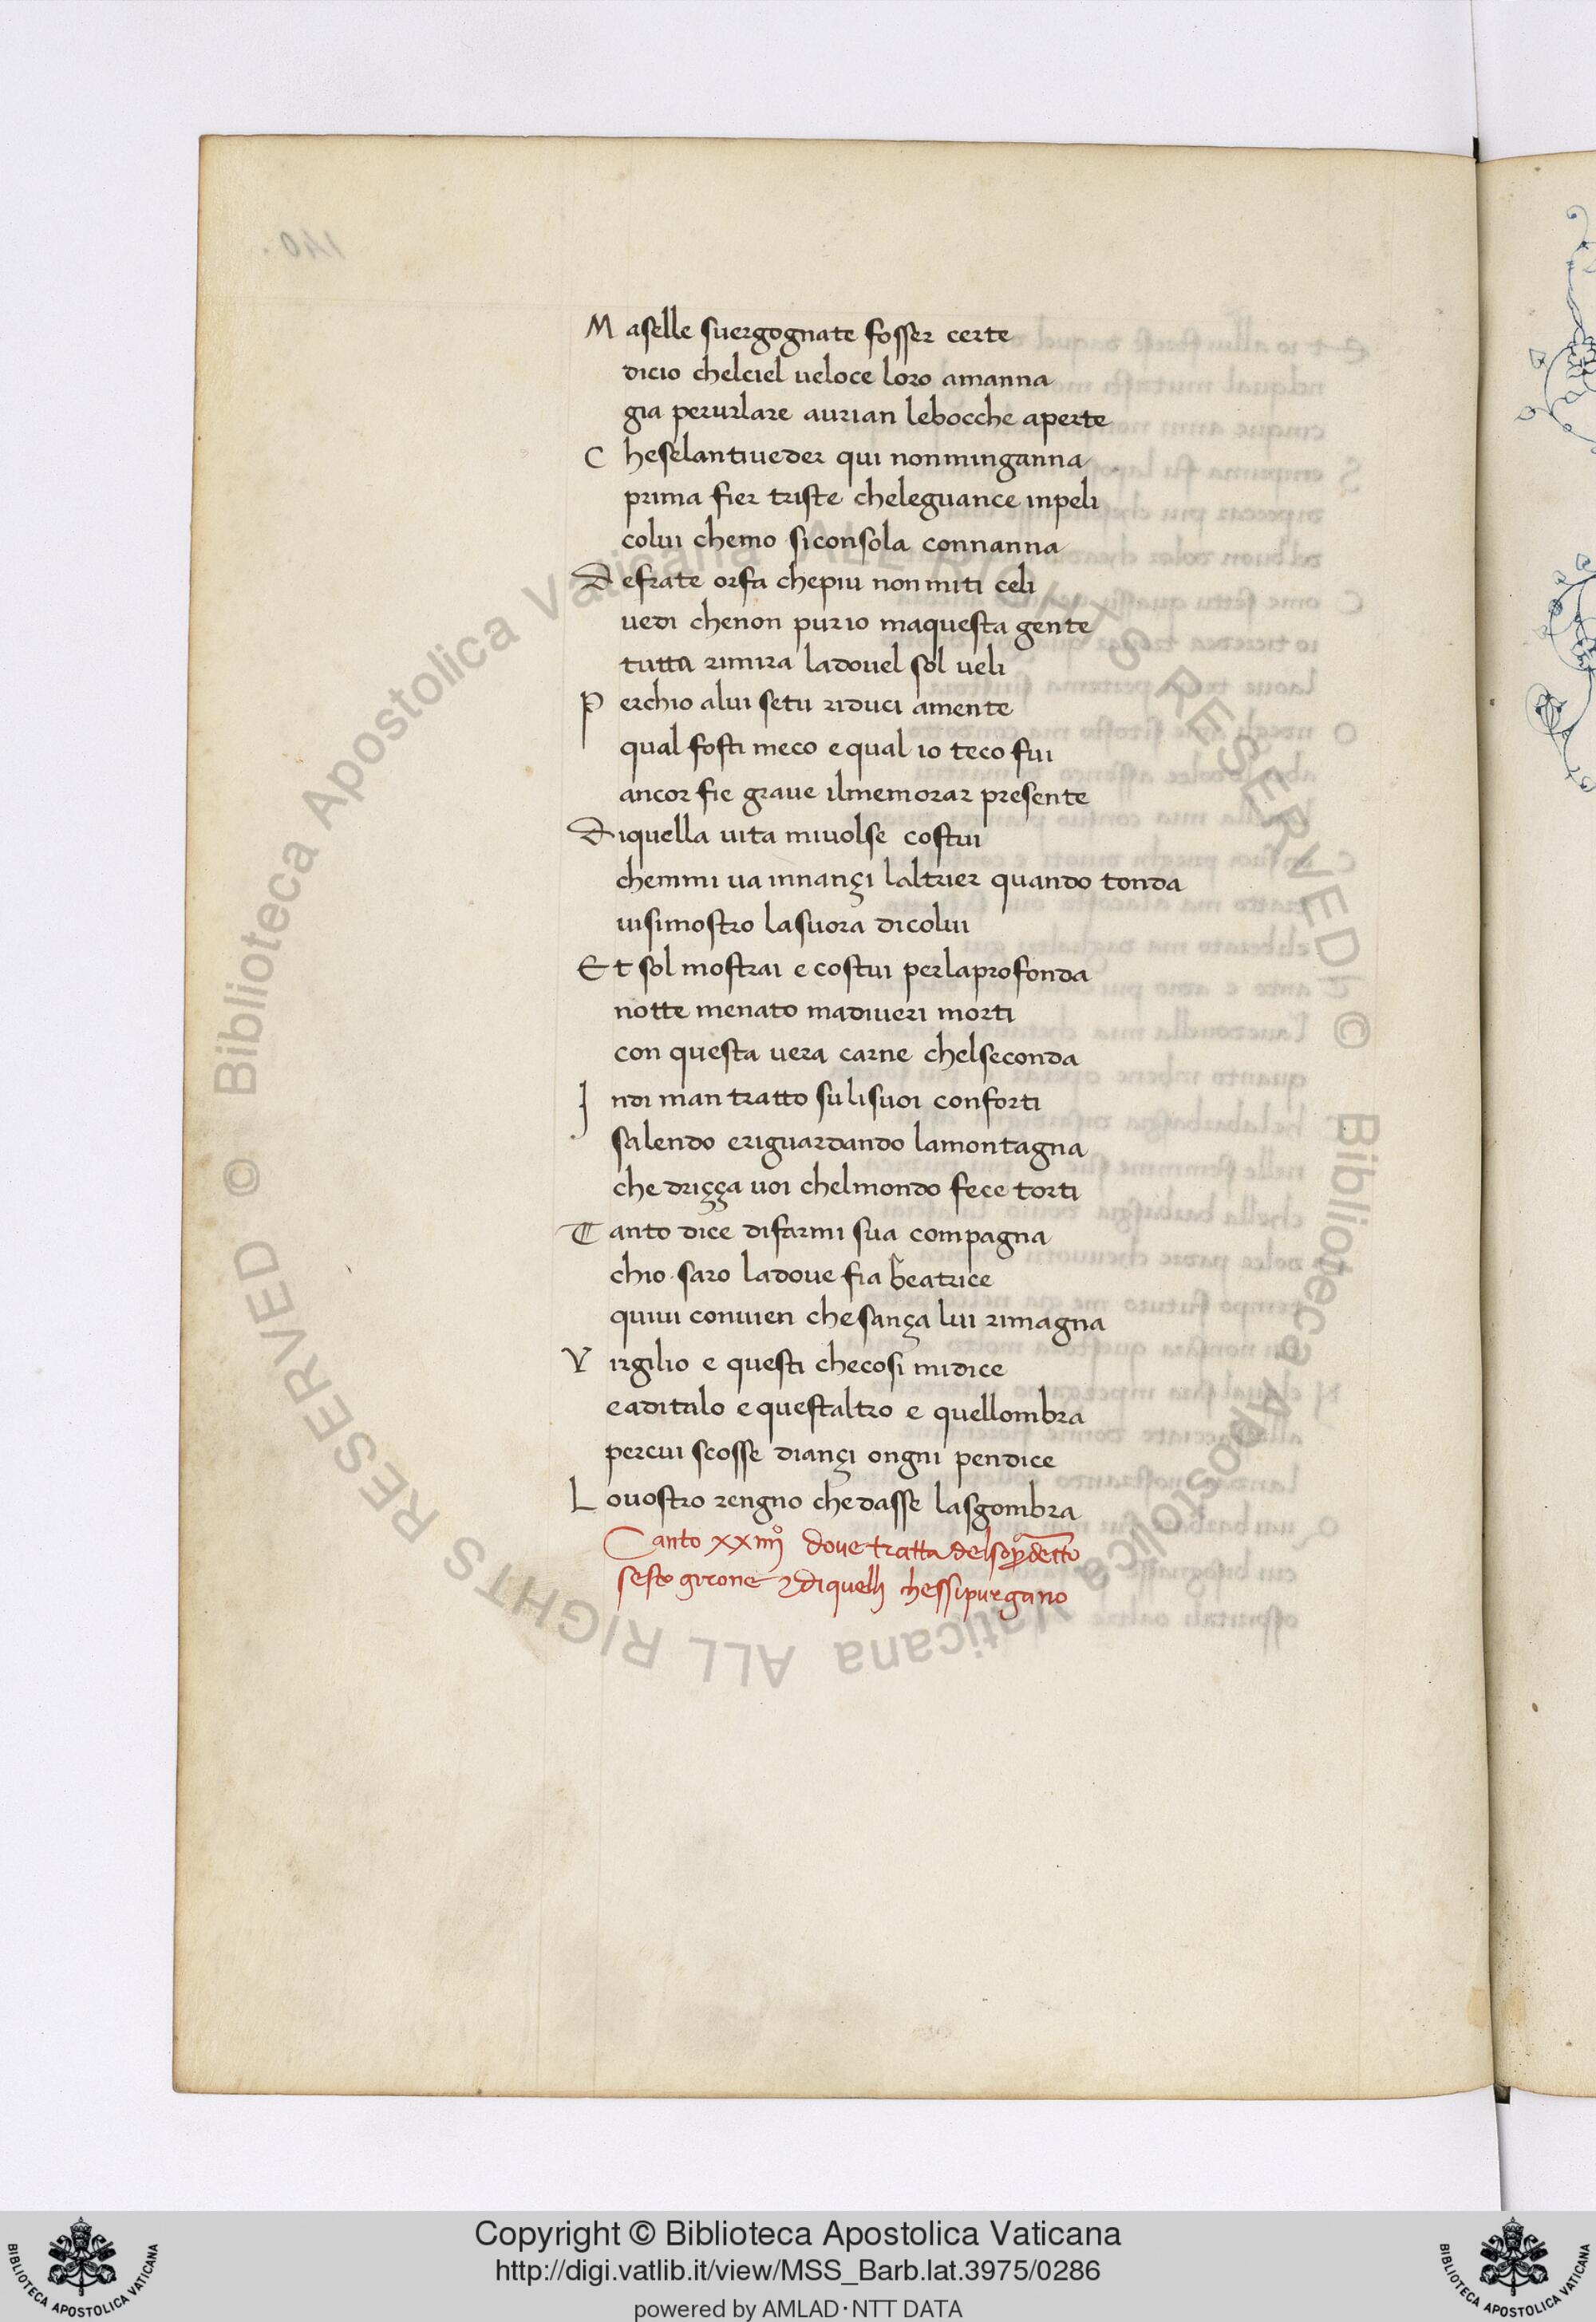 M aselle suergognate fosser certe
dicio chelciel ueloce loro amanna
gia perurlare aurian lebocche aperte
C heselantiueder qui nonminganna
prima fier triste cheleguance inpeli
colui chemo siconsola connanna
D efrate orfa chepiu non miti celi
uedi chenon purio maquesta gente
tutta rimira ladouel sol ueli
P erchio alui setu riduci amente
qual fosti meco e qual io teco fui
ancor fie graue ilmemorar presente
D iquella uita miuolse costui
chemmi ua innançi laltrier quando tonda
uisimostro lasuora dicolui
E t sol mostrai e costui perlaprofonda
notte menato madiueri morti
con questa uera carne chelseconda
I ndi man tratto su lisuoi conforti
salendo eriguardando lamontagna
che driçça uoi chelmondo fece torti
T anto dice difarmi sua compagna
chio saro ladoue fia beatrice
quiui conuien chesança lui rimagna
V irgilio e questi checosi midice
eaditalo e questaltro e quellombra
percui scosse diançi ongni pendice
L ouostro rengno chedasse lasgombra
Canto xxiiijº doue tratta del sopradetto
sesto girone ⁊ diquelli chessipurgano
140.
Biblioteca Apostolica Vaticana ALL RIGHTS RESERVED ©
Biblioteca Apostolica Vaticana ALL RIGHTS RESERVED ©
BIBLIOTECA APOSTOLICA VATICANA
Copyright © Biblioteca Apostolica Vaticana
http://digi.vatlib.it/view/MSS_Barb.lat.3975/0286
powered by AMLAD·NTT DATA
BIBLIOTECA APOSTOLICA VATICANA